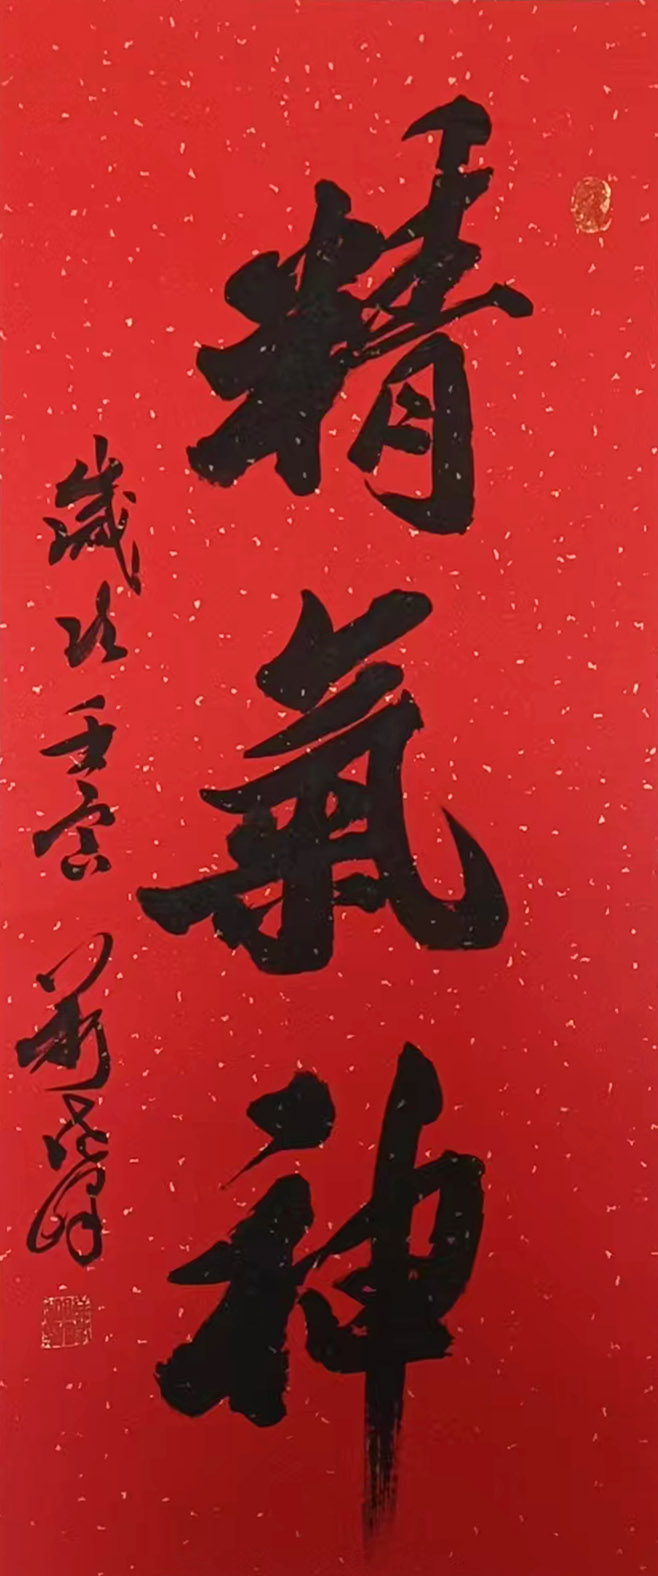 精氣神
歲次壬寅